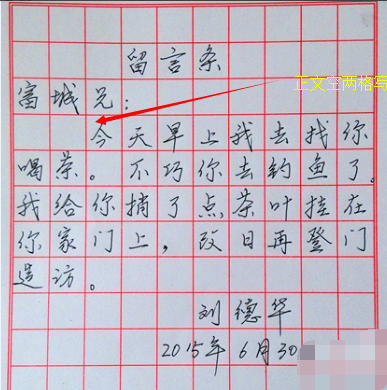 留言条
正文空两格写
富城兄：
今天早上我去找你
喝茶。不巧你去钓鱼了。
我给你捎了点茶叶挂在
你家门上，改日再登门
造访。
刘德华
2015年6月30